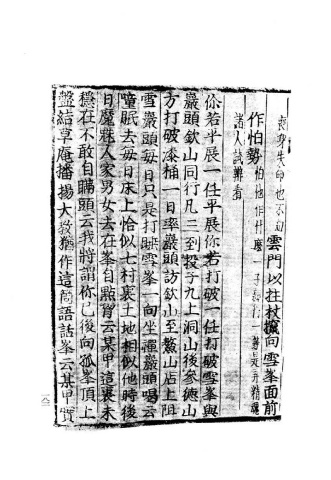 喪身失命也不知雲門以拄杖攛向雪峯面前
作怕勢怕他作什麼一子親得一等是弄精魂
諸人試辨看
你若平展一任平展你若打破一任打破雪峯與
巖頭欽山同行凡三到投子九上洞山後參德山
方打破漆桶一日率巖頭訪欽山至鰲山店上阻
雪巖頭每日只是打睡雪峯一向坐禪巖頭喝云
噇眠去每日床上恰似七村裏土地相似他時後
日魔魅人家男女去在峯自點胷云某甲這裏未
穩在不敢自瞞頭云我將謂你已後向孤峯頂上
盤結草庵播揚大教猶作這箇語話峯云某甲實